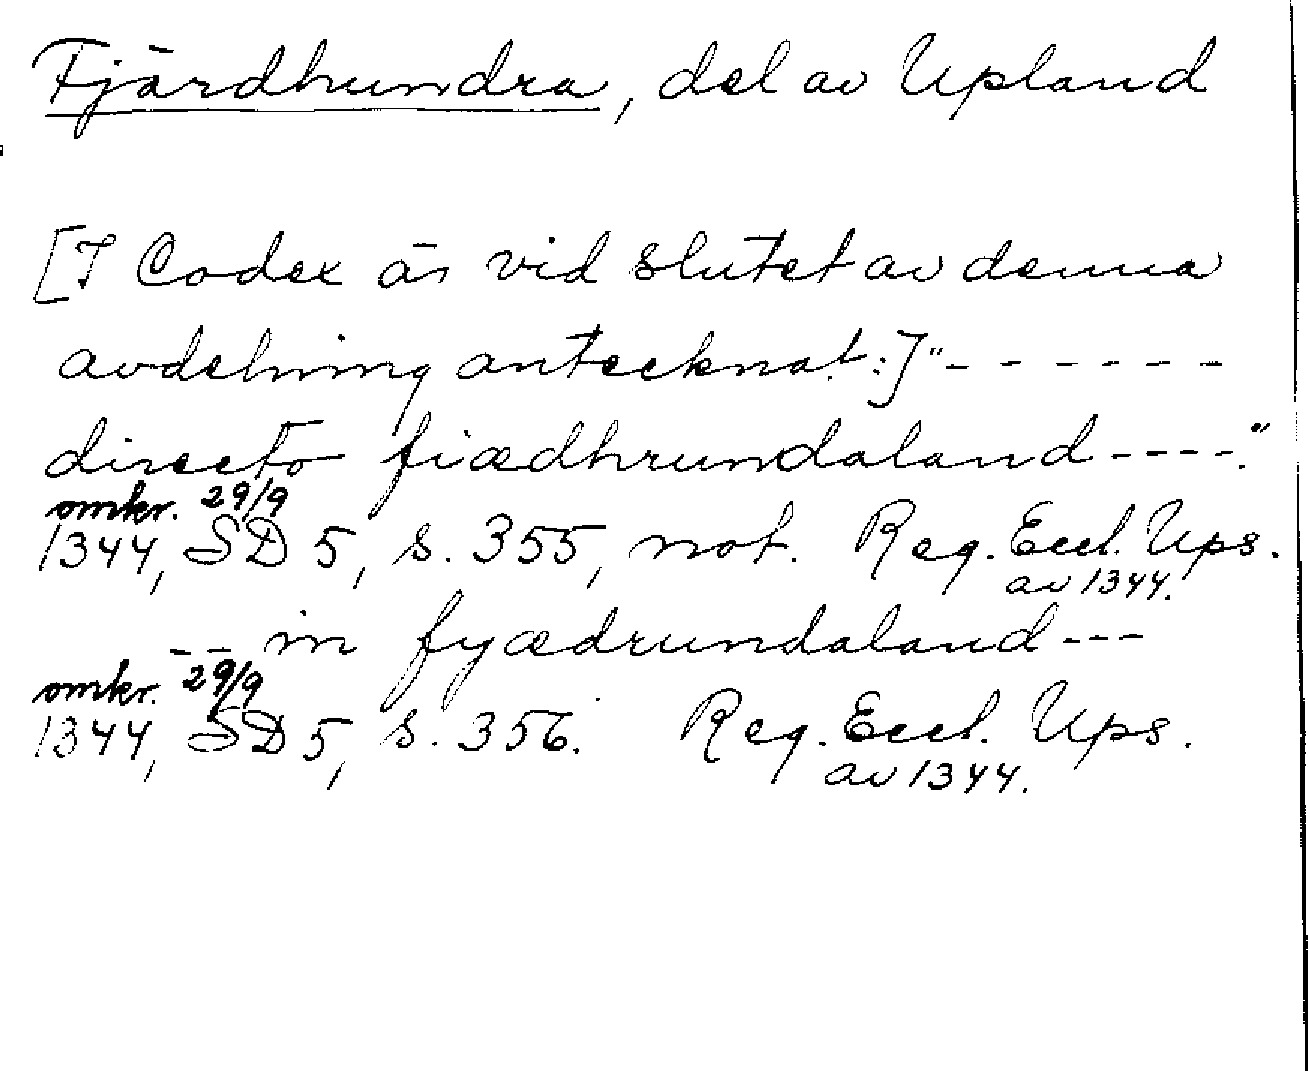 Fjärdhundra, del av Upland
[I Codex är vid slutet av denna
avdelning antecknat:]"------
directo fiædhrundaland----."
omkr. 29/9
1344, SD 5, s. 355, not. Reg. Eccl. Ups.
av 1344.
-- in fyædrundaland---
omkr. 29/9
1344, SD 5, s. 356. Reg. Eccl. Ups.
av 1344.